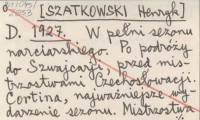 [SZATKOWSKI Henryk]
D. 1927. W pełni sezonu
narciarskiego. Po podróży
do Szwajcarji przed mis-
trzostwami Czechosłowacji.
Cortina, najważniejsze wy-
darzenie sezonu. Mistrzostwa